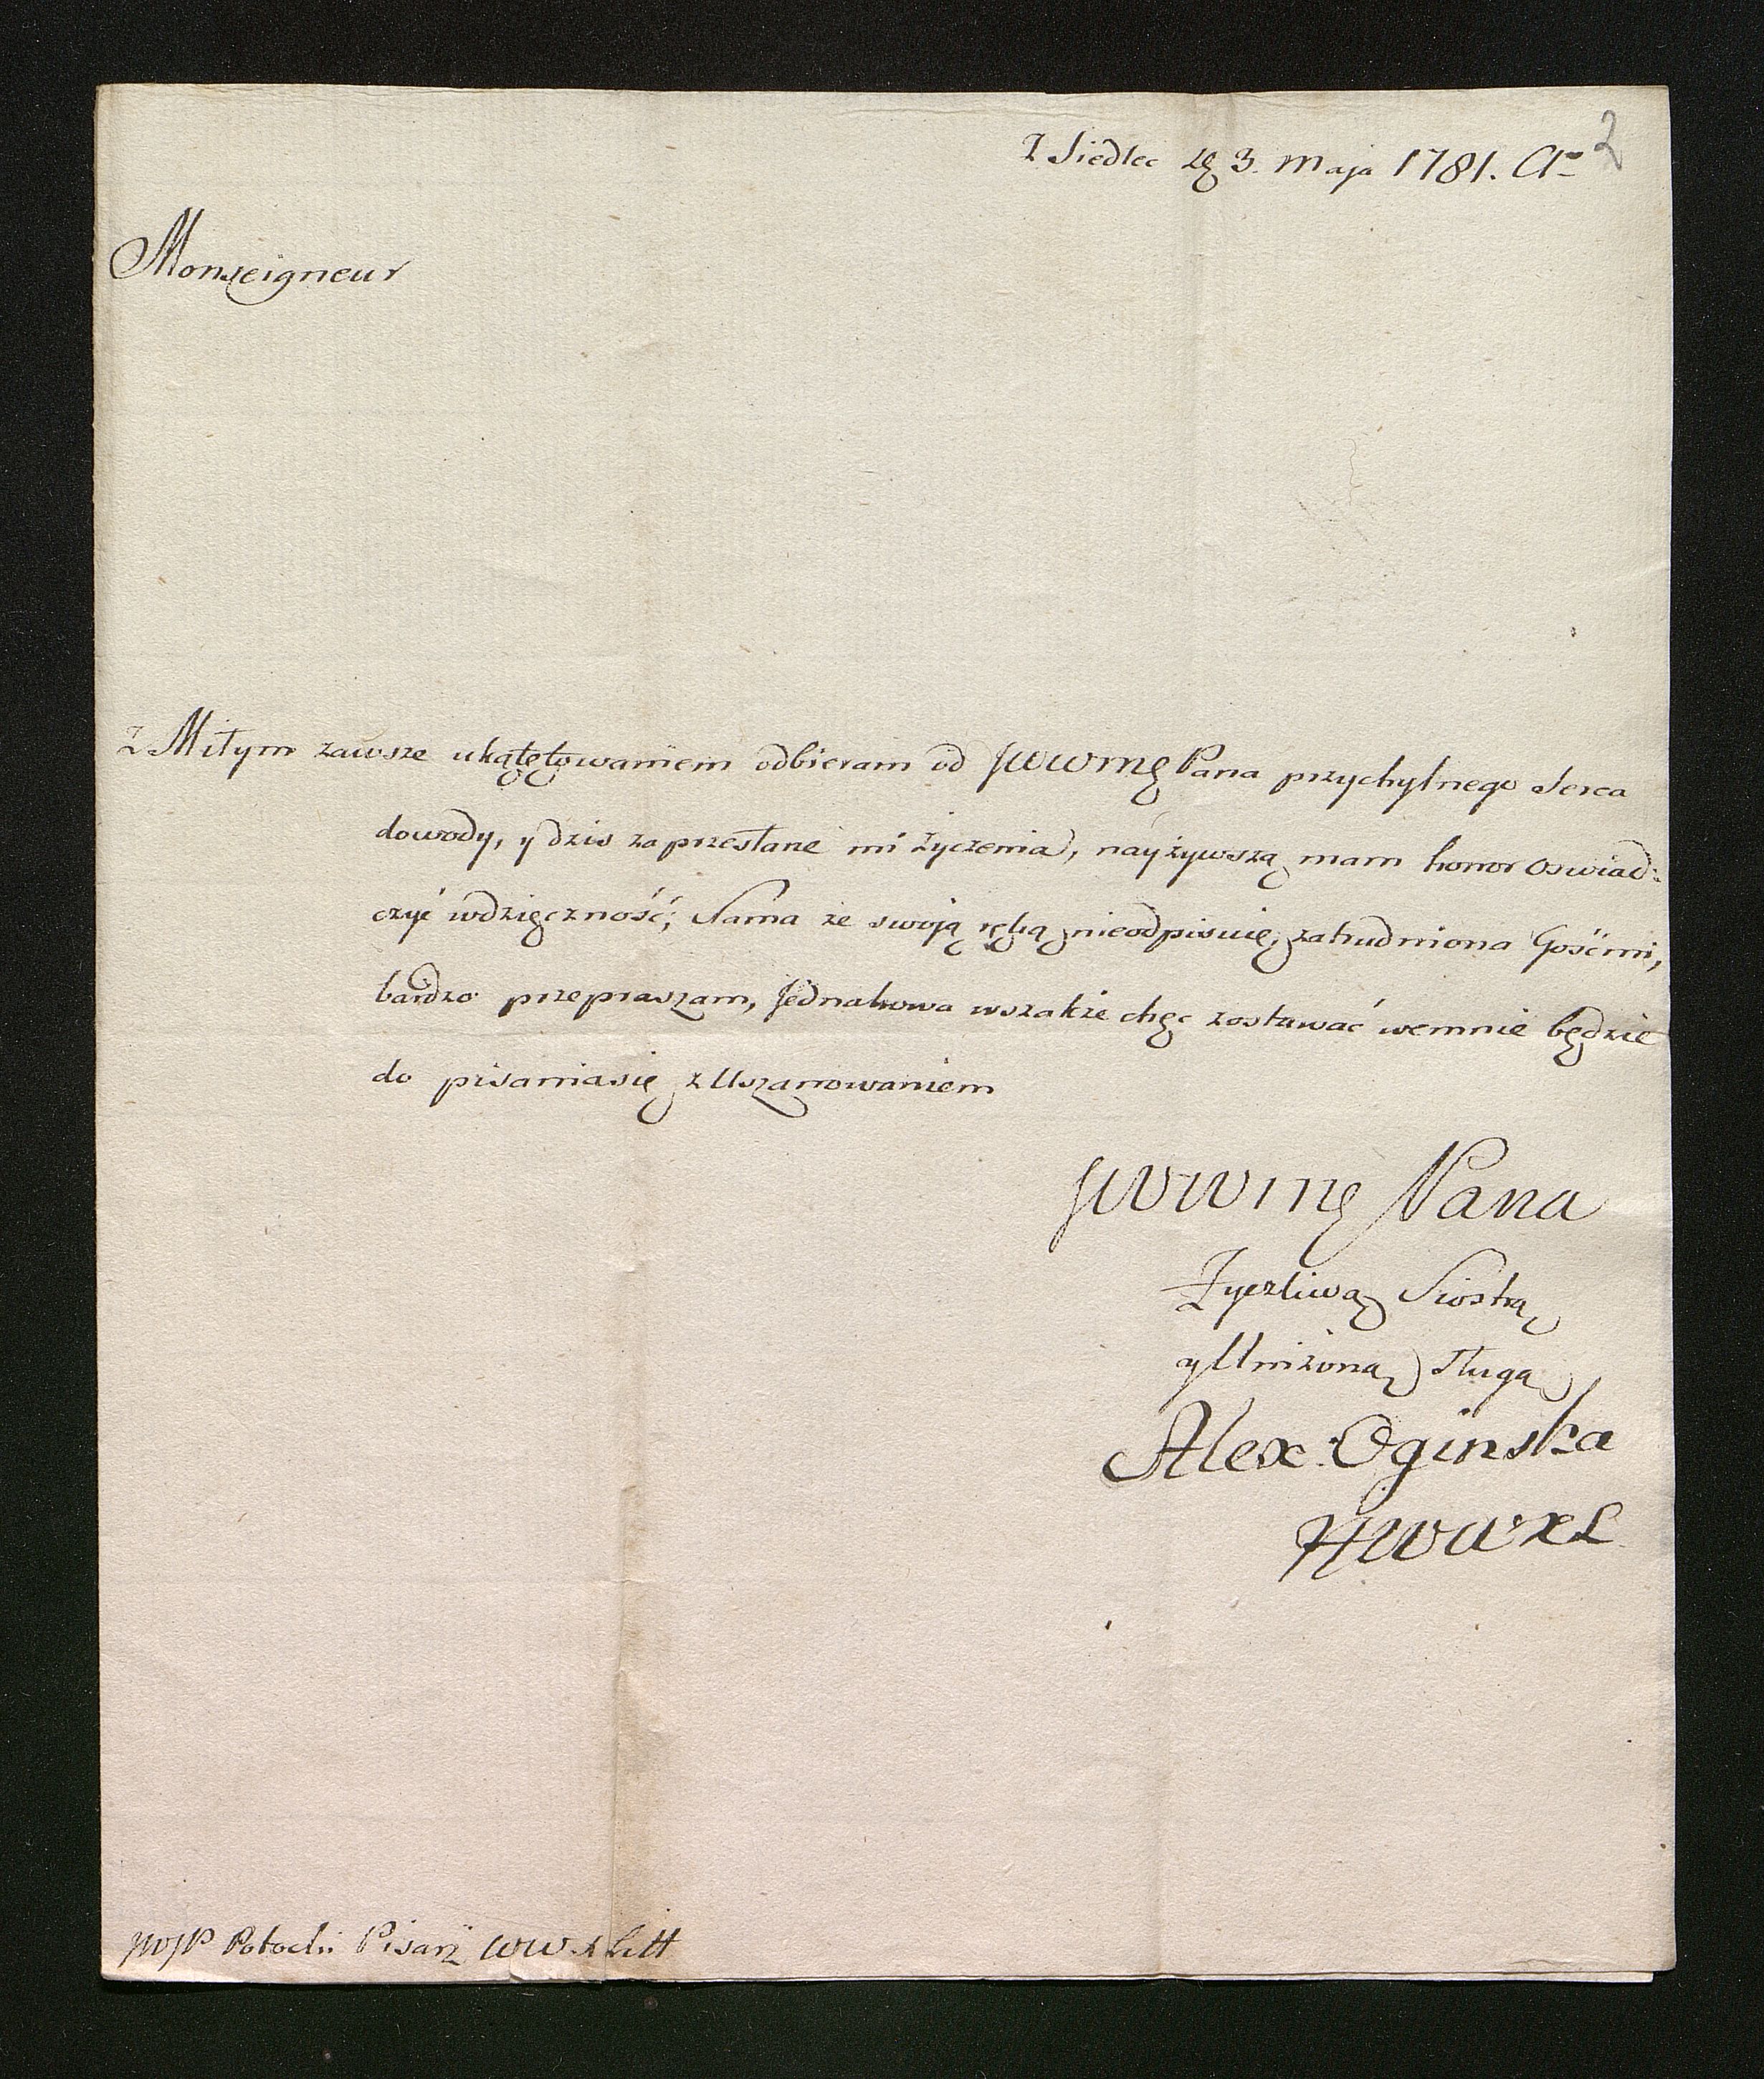 2
Z Siedlec dę 3. Maja 1781. Ao
Monseigneur
Z Miłym zawsze ukątętowaniem odbieram od JWWMę Pana przychylnego Serca
dowody, y dzis za przesłane mi życzenia, nayżywszą mam honor Oswiad:
czyć wdzięczność; Sama że swoją ręką nieodpisuię, zatrudniona Gośćmi,
bardzo przepraszam, Jednakowa wszakże chęc zostawać wemnie będzie
do pisaniasię z Uszanowaniem
JWWMę Pana
Życzliwą Siostrą
y Uniżoną Sługą
Alex: Oginska
HWWXL
JWJP Potocki Pisarz WWX Litt